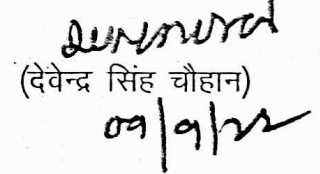 (देवेन्द्र सिंह चौहान)
09/9/22